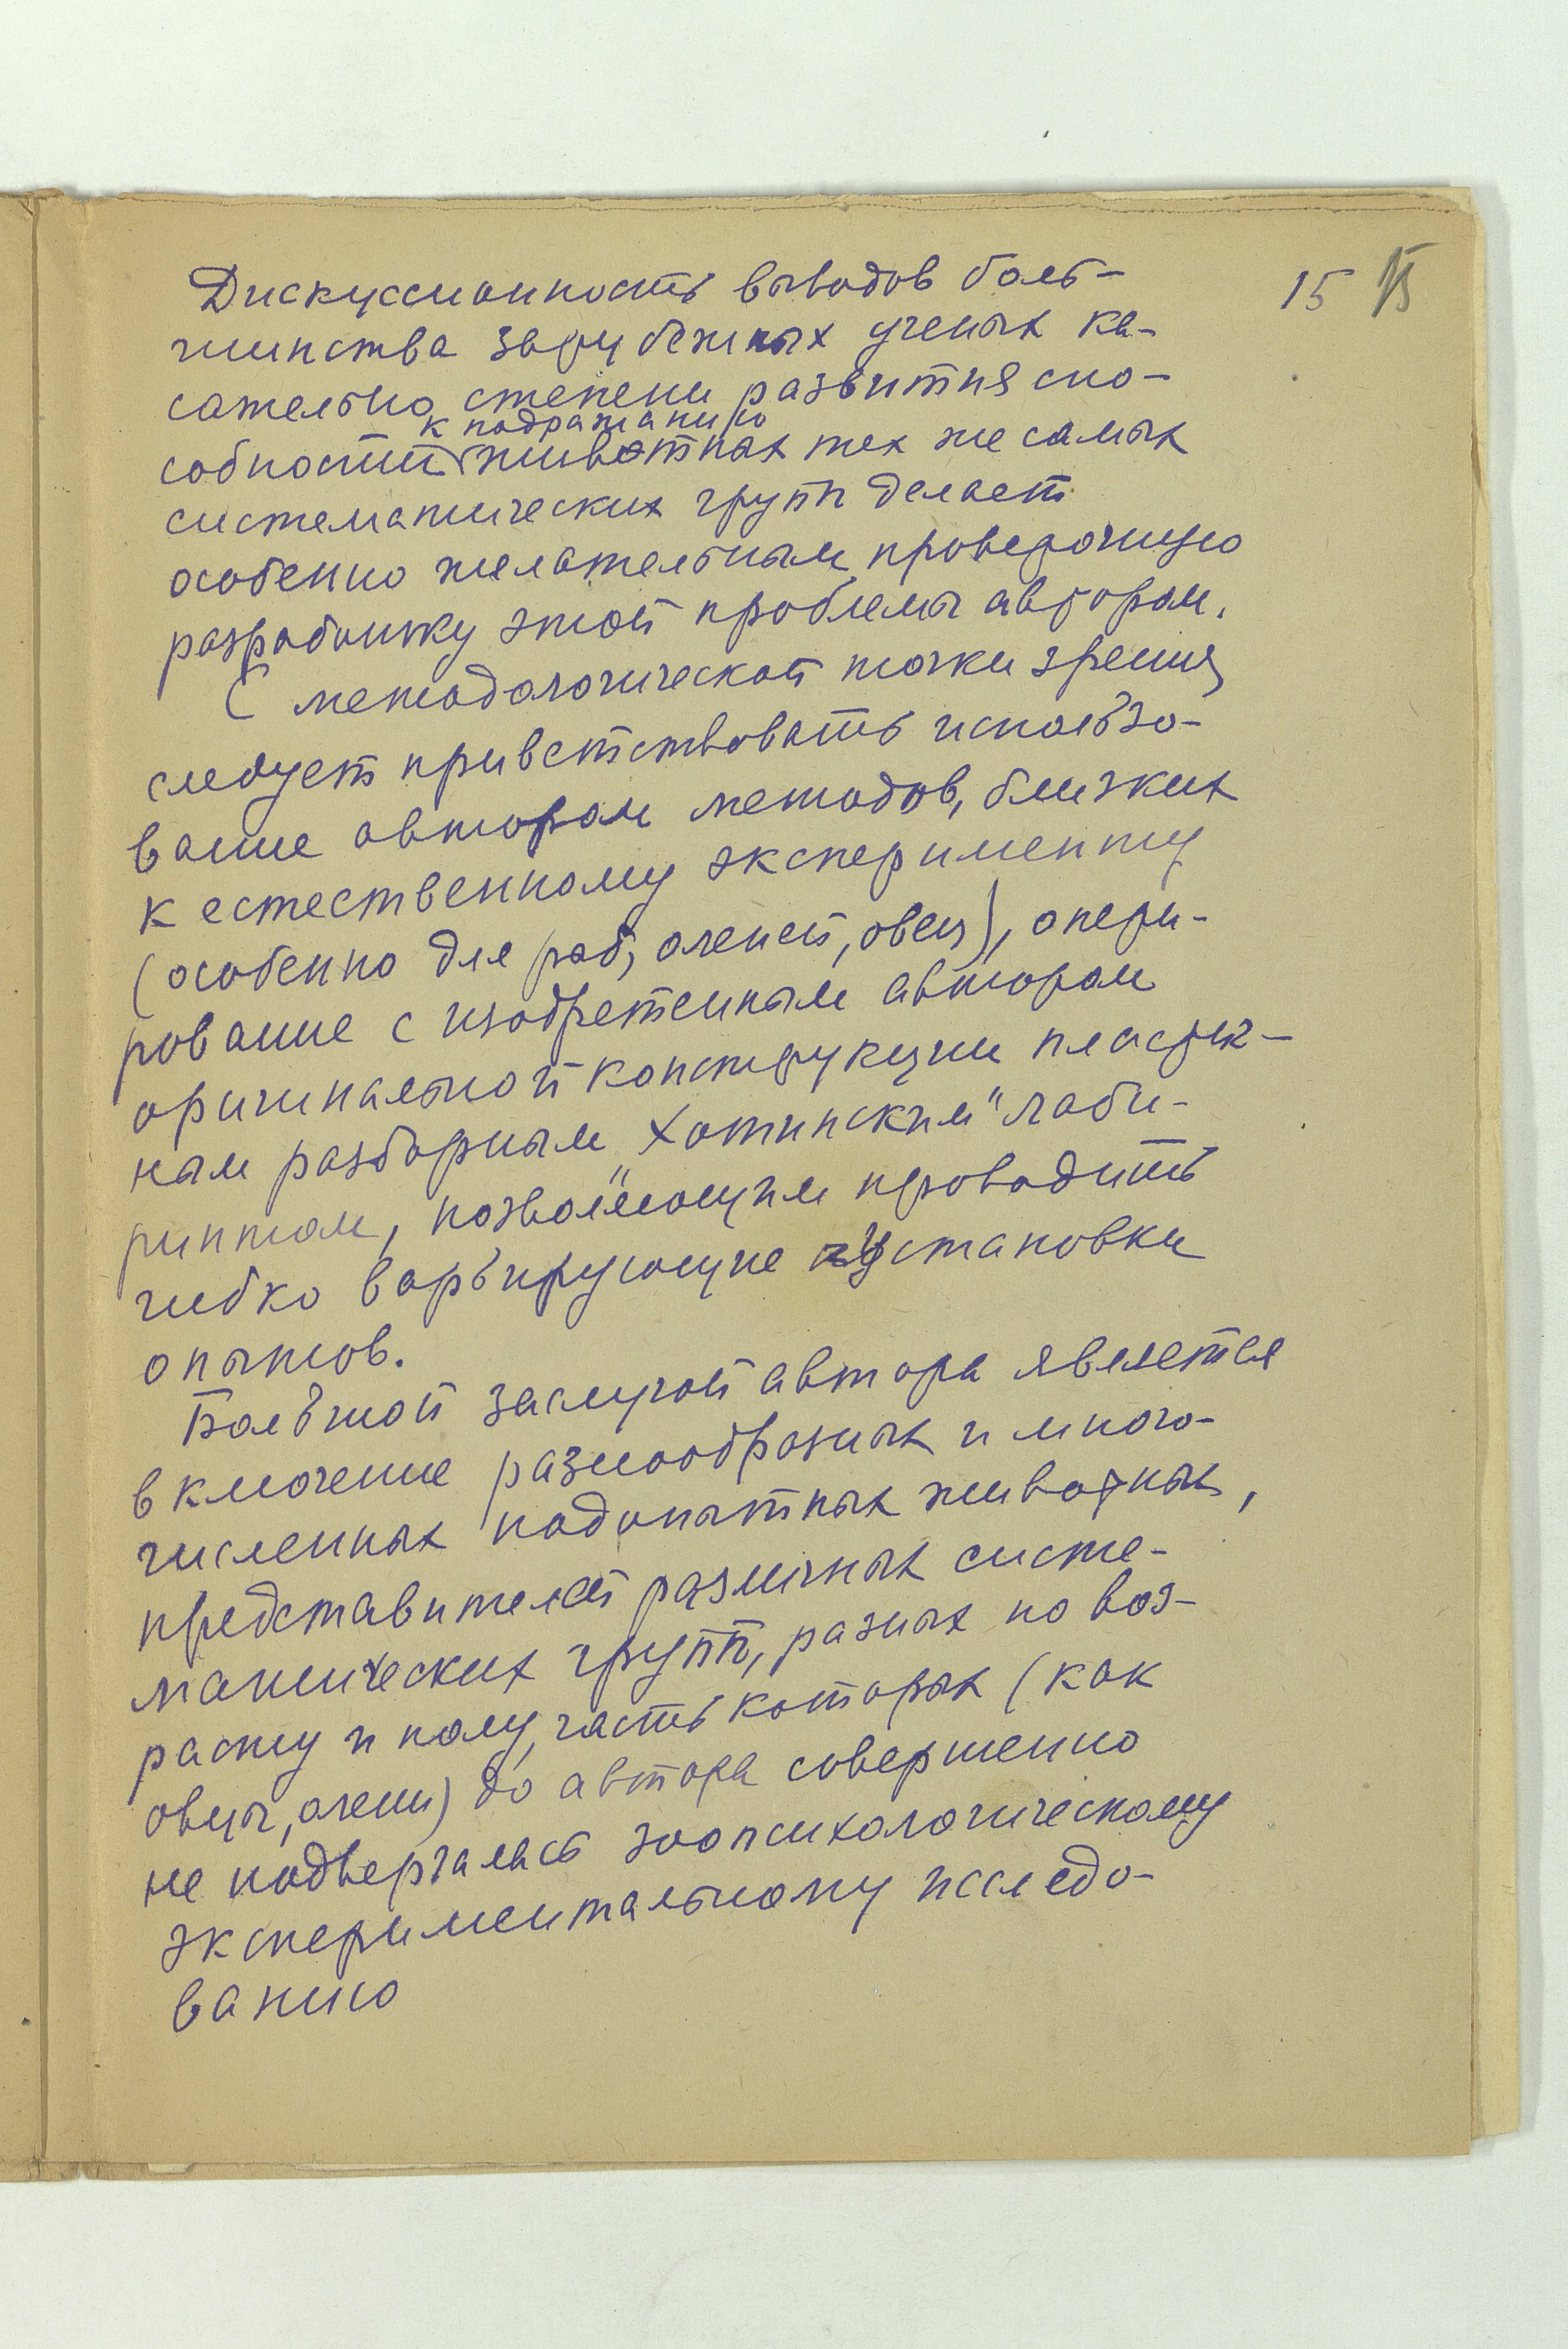 15 15
Дискуссионность выводов боль-
шинства зарубежных ученых ка-
сательно степени развития спо-
к подражанию
собностей животных тех же самых
систематических групп делает
особенно желательным проверочную
разработку этой проблемы автором.
С методологической точки зрения
следует приветствовать использо-
вание автором методов, близких
к естественному эксперименту
(особенно для рыб, оленей, овец), опери-
рование с изобретенным автором
оригинальной конструкции
ным разборным „Хотинским" лаби-
ринтом, позволяющим проводить
гибко варьирующие установки
опытов.
Большой заслугой автора является
включение разнообразных и много-
численных подопытных животных,
представителей различных систе-
матических групп, разных по воз-
расту и полу, часть которых (как
овцы, олени) до автора совершенно
не подвергалась зоопсихологическому
экспериментальному исследо-
ванию